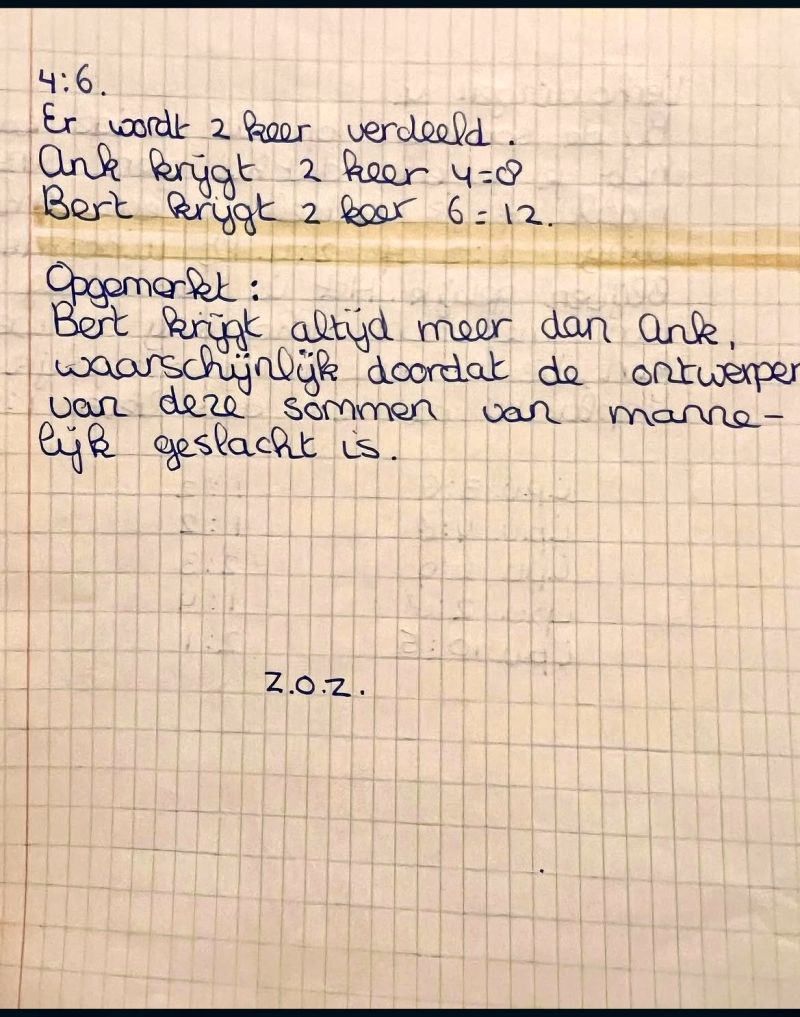 4:6.
Er wordt 2 keer verdeeld.
Ank krijgt 2 keer 4=8
Bert krijgt 2 keer 6=12.
Opgemerkt:
Bert krijgt altijd meer dan Ank,
waarschijnlijk doordat de ontwerper
van deze sommen van manne-
lijk geslacht is.
Z.O.Z.